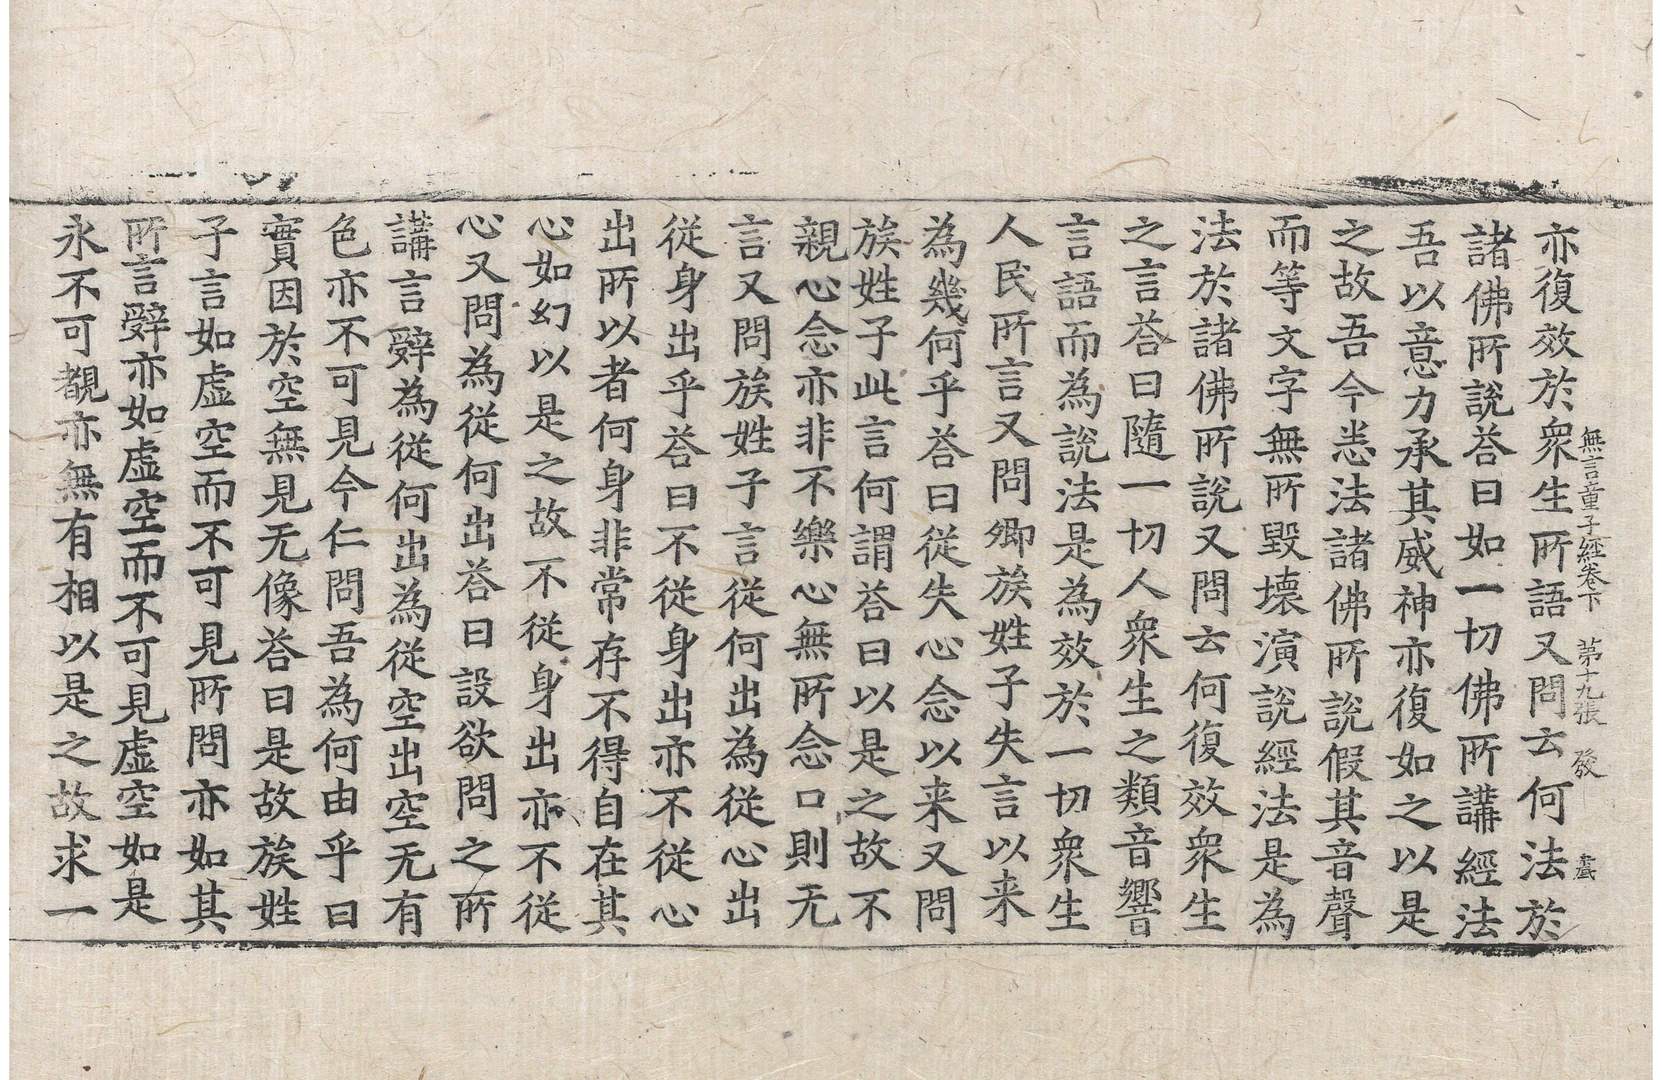 無言童子經卷下 第十九張 發
亦復效於衆生所語又問云何法於
諸佛所說荅曰如一切佛所講經法
吾以意力承其威神亦復如之以是
之故吾今恙法諸佛所說假其音聲
而等文字無所毀壞演說經法是為
法於諸佛所說又問云何復效衆生
之言荅曰隨一切人衆生之類音響
言語而為說法是為效於一切衆生
人民所言又問卿族姓子失言以来
為幾何乎荅曰從失心念以来又問
族姓子此言何謂荅曰以是之故不
親心念亦非不樂心無所念口則无
言又問族姓子言從何出為從心出
從身出乎荅曰不從身出亦不從心
出所以者何身非常存不得自在其
心如幻以是之故不從身出亦不從
心又問為從何出荅曰設欲問之所
講言辭為從何出為從空出空无有
色亦不可見今仁問吾為何由乎曰
實因於空無見无像荅曰是故族姓
子言如虛空而不可見所問亦如其
所言辭亦如虛空而不可見虛空如是
永不可覩亦無有相以是之故求一